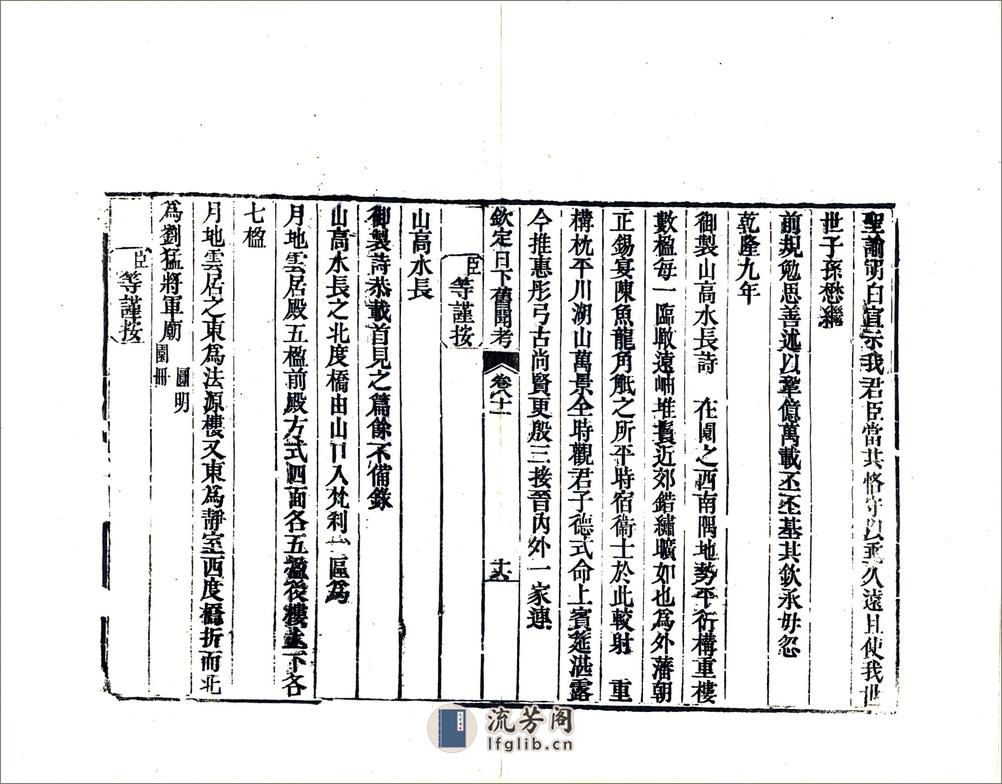 聖諭朙白宣示我君臣當共恪守以垂久遠且使我世
世子孫懋纘
前規勉思善述以鞏億萬載丕丕基其欽承毋忽
乾隆九年
御製山高水長詩　在園之西南隅地勢平衍構重樓
數楹每一臨瞰遠岫堆鬟近郊錯繡曠如也爲外藩朝
正錫宴陳魚龍角觝之所平時宿衞士於此較射　重
構枕平川湖山萬景全時觀君子德式命上賓筵湛露
今推惠彤弓古尚賢更殷三接晉內外一家連
欽定日下舊聞考　卷八十一　十六
臣等謹按
山高水長
御製詩恭載首見之篇餘不備錄
山高水長之北度橋由山口入梵刹一區爲
月地雲居殿五楹前殿方式四面各五楹後樓上下各
七楹
月地雲居之東爲法源樓又東爲靜室西度橋折而北
爲劉猛將軍廟　圓明園冊
臣等謹按
流芳阁
lfglib.cn